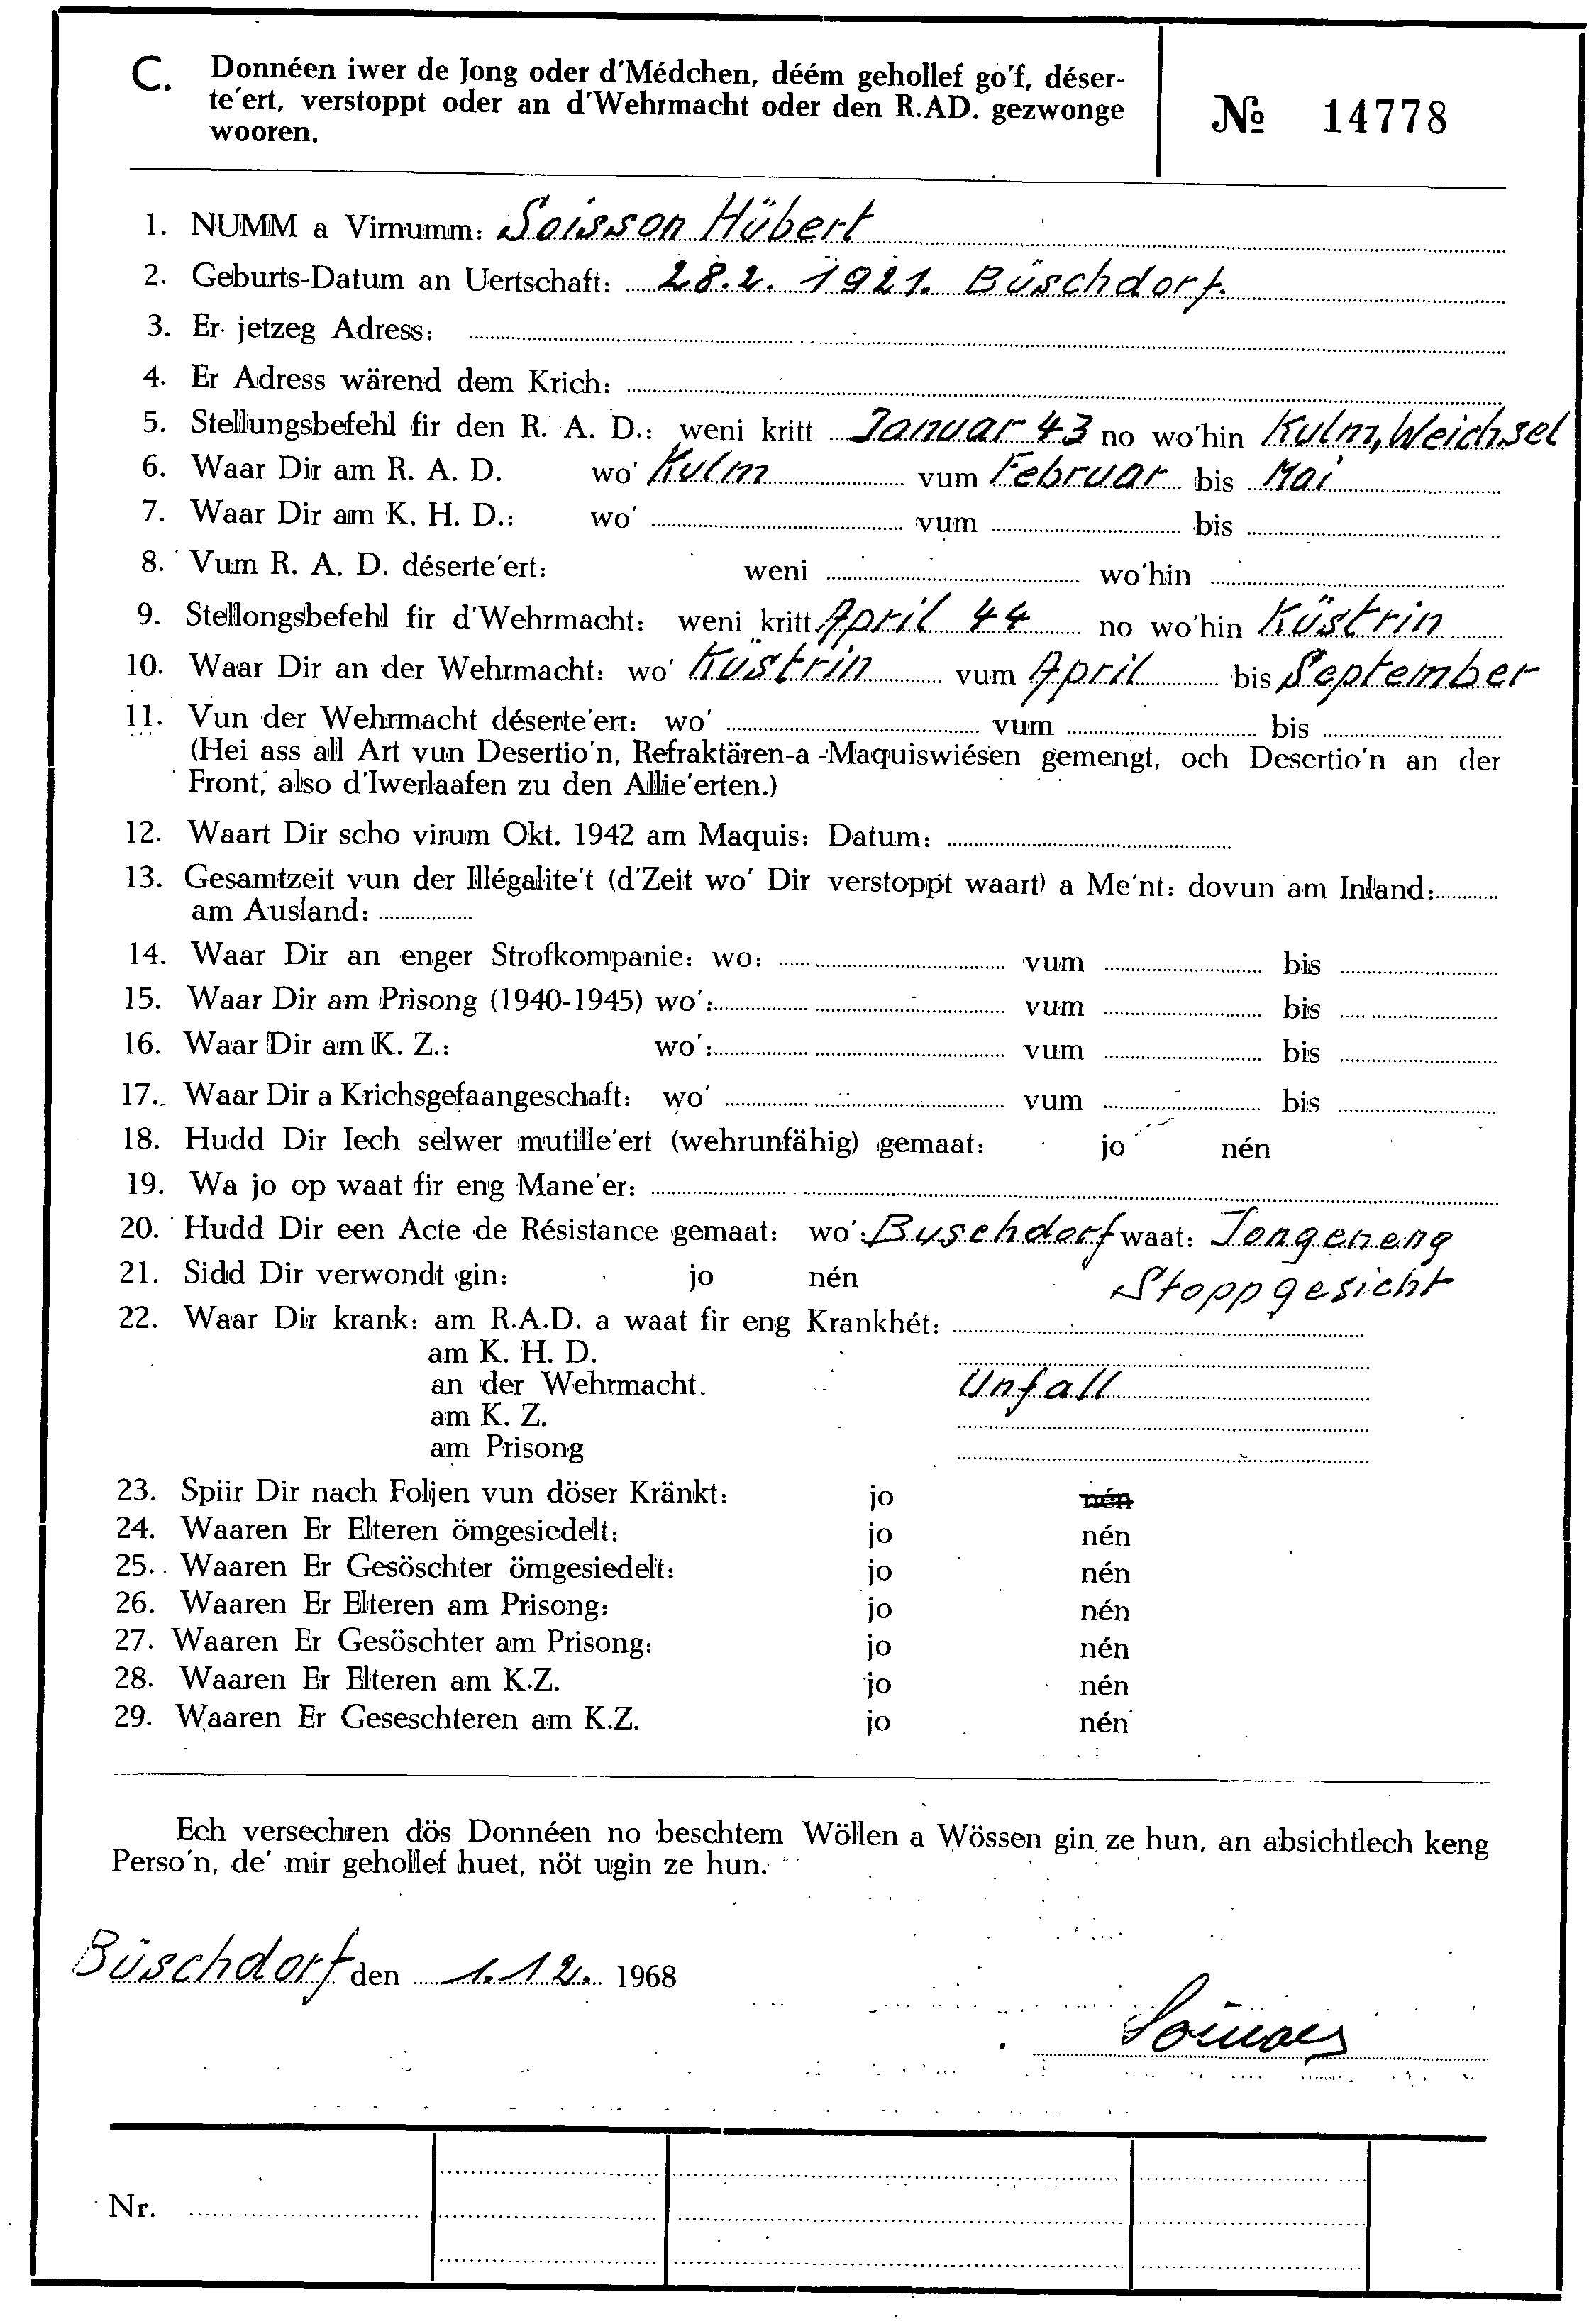 C. Donnéen iwer de Jong oder d'Médchen, déém gehollef go'f, déser-
te'ert, verstoppt oder an d'Wehrmacht oder den R.AD. gezwonge
wooren.
№ 14778
1. NUMM a Virnumm: Soisson Hübert
2. Geburts-Datum an Uertschaft: 28.2. 1921. Büschdorf.
3. Er jetzeg Adress:
4. Er Adress wärend dem Krich:
5. Stellungsbefehl fir den R. A. D.: weni kritt Januar 43 no wo'hin Kulm, Weichsel
6. Waar Dir am R. A. D. wo' Kulm vum Februar bis Mai
7. Waar Dir am K. H. D.: wo' vum bis
8. Vum R. A. D. déserte'ert: weni wo'hin
9. Stellongsbefehl fir d'Wehrmacht: weni kritt April 44 no wo'hin Küstrin
10. Waar Dir an der Wehrmacht: wo' Küstrin vum April bis September
11. Vun der Wehrmacht déserte'ert: wo' vum bis
(Hei ass all Art vun Desertio'n, Refraktären-a -Maquiswiésen gemengt, och Desertio'n an der
Front, also d'Iwerlaafen zu den Allie'erten.)
12. Waart Dir scho virum Okt. 1942 am Maquis: Datum:
13. Gesamtzeit vun der Illégalite't (d'Zeit wo' Dir verstoppt waart) a Me'nt: dovun am Inland:
am Ausland:
14. Waar Dir an enger Strofkompanie: wo: vum bis
15. Waar Dir am Prisong (1940-1945) wo': vum bis
16. Waar Dir am K. Z.: wo': vum bis
17. Waar Dir a Krichsgefaangeschaft: wo' vum bis
18. Hudd Dir Iech selwer mutille'ert (wehrunfähig) gemaat: jo nén
19. Wa jo op waat fir eng Mane'er:
20. Hudd Dir een Acte de Résistance gemaat: wo': Buschdorf waat: Jongeneng
21. Sidd Dir verwondt gin: jo nén Stoppgesicht
22. Waar Dir krank: am R.A.D. a waat fir eng Krankhét:
am K. H. D.
an der Wehrmacht. Unfall
am K. Z.
am Prisong
23. Spiir Dir nach Foljen vun döser Kränkt: jo nén
24. Waaren Er Elteren ömgesiedelt: jo nén
25. Waaren Er Gesöschter ömgesiedelt: jo nén
26. Waaren Er Elteren am Prisong: jo nén
27. Waaren Er Gesöschter am Prisong: jo nén
28. Waaren Er Elteren am K.Z. jo nén
29. Waaren Er Geseschteren am K.Z. jo nén
Ech versechren dös Donnéen no beschtem Wöllen a Wössen gin ze hun, an absichtlech keng
Perso'n, de' mir gehollef huet, nöt ugin ze hun.
Büschdorf den 1.12. 1968
Nr.